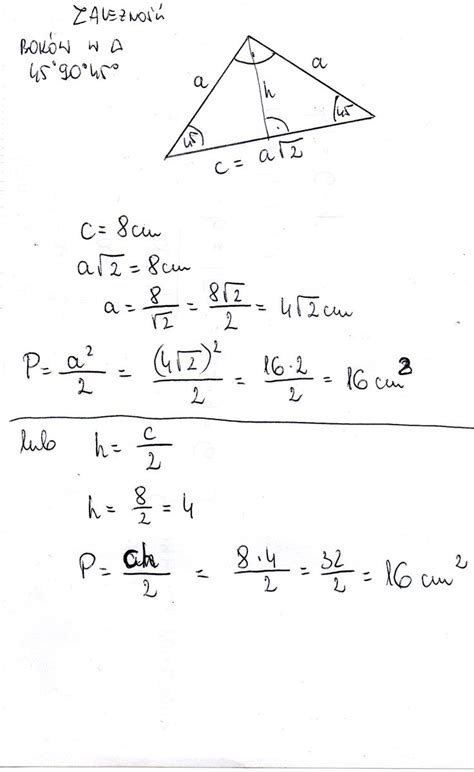 ZALEŻNOŚĆ
BOKÓW W Δ
45°90°45°
a
a
h
45
45
c = a√2
c = 8cm
a√2 = 8cm
a = 8/√2 = 8√2/2 = 4√2cm
P = a²/2 = (4√2)²/2 = 16·2/2 = 16cm²
lub h = c/2
h = 8/2 = 4
P = ch/2 = 8·4/2 = 32/2 = 16cm²